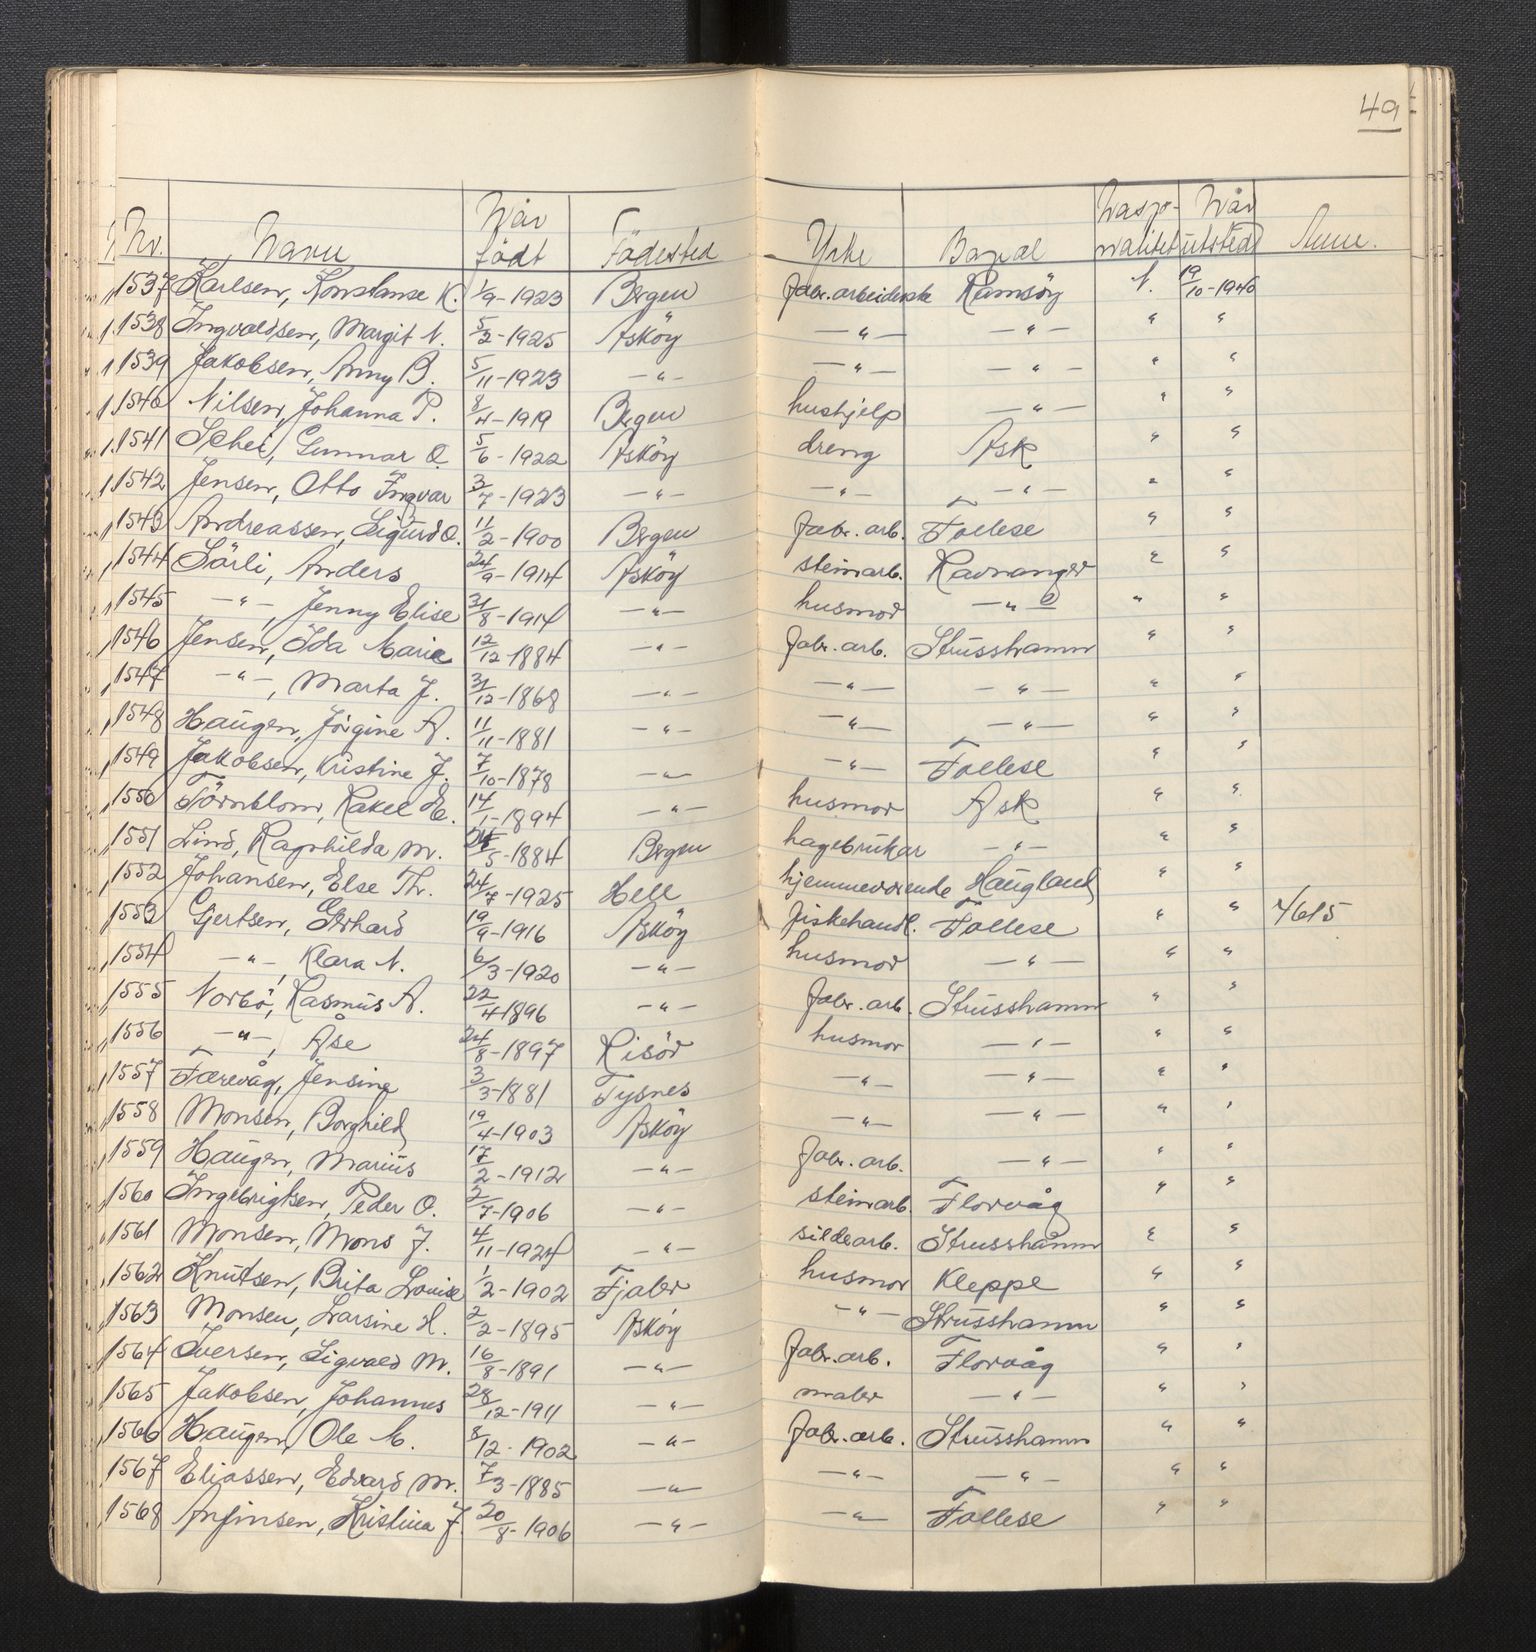 49
Nr. Navn Når födt Födested Yrke Bopæl Nasjonalitet Når utsted Anm.
1537 Karlsen, Konstanse K. 1/9-1923 Bergen fabr.arbeiderske Ramsöy N. 19/10-1940
1538 Ingvaldsen, Margit N. 5/2-1925 Asköy —"— —"— " "
1539 Jakobsen, Anny B. 5/11-1923 —"— —"— —"— " "
1540 Nilsen, Johanna P. 8/4-1919 Bergen hushjelp —"— " "
1541 Schei, Gunnar O. 5/6-1922 Asköy dreng Ask " "
1542 Jensen, Otto Ingvar 3/7-1923 —"— —"— —"— " "
1543 Andreassen, Sigurd O. 11/2-1900 Bergen fabr. arb. Follese " "
1544 Sörli, Anders 24/9-1914 Asköy steinarb. Ravnanger " "
1545 —"—, Jenny Elise 31/8-1914 —"— husmor —"— " "
1546 Jensen, Ida Marie 12/12-1884 —"— fabr. arb. Strusshamn " "
1547 —"—, Marta J. 31/12-1868 —"— —"— —"— " "
1548 Haugen, Jörgine A. 11/11-1881 —"— —"— —"— " "
1549 Jakobsen, Kristine J. 7/10-1878 —"— —"— Follese " "
1550 Törnblom, Rakel E. 14/1-1894 —"— husmor Ask " "
1551 Lind, Ragnhilda M. 24/5-1884 Bergen hagebrukar —"— " "
1552 Johansen, Else Th. 24/7-1925 Hell hjemmeværende Haugland " "
1553 Gjertsen, Gerhard 19/9-1916 Asköy fiskehandl. Follese " " 4615
1554 —"—, Klara N. 6/3-1920 —"— husmor —"— " "
1555 Norbö, Rasmus A. 22/4-1896 —"— fabr. arb. Strusshamn " "
1556 —"—, Åse 24/8-1897 Risör husmor —"— " "
1557 Færevåg, Jensine 3/3-1881 Tysnes —"— —"— " "
1558 Monsen, Borghild 19/4-1903 Asköy —"— —"— " "
1559 Haugen, Marius 17/2-1912 —"— fabr. arb. —"— " "
1560 Ingebrigtsen, Peder O. 2/7-1906 —"— steinarb. Florvåg " "
1561 Monsen, Mons J. 4/11-1924 —"— sildearb. Strusshamn " "
1562 Knutsen, Brita Louise 1/2-1902 Fjaler husmor Kleppe " "
1563 Monsen, Larsine H. 2/2-1895 Asköy —"— Strusshamn " "
1564 Iversen, Sigvald M. 16/8-1891 —"— fabr. arb. Florvåg " "
1565 Jakobsen, Johannes 28/12-1911 —"— maler —"— " "
1566 Haugen, Ole M. 8/12-1902 —"— fabr. arb. Strusshamn " "
1567 Eliassen, Edvard M. 7/3-1885 —"— —"— —"— " "
1568 Anfinsen, Kristina J. 20/8-1906 —"— —"— Follese " "